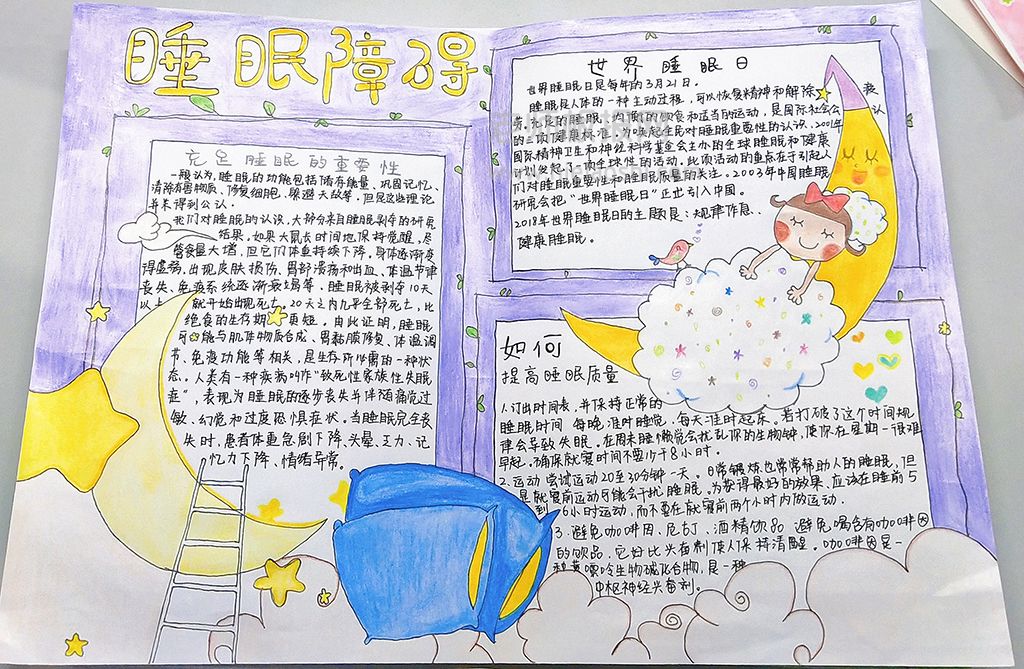 睡眠障碍
充足睡眠的重要性
一般认为,睡眠的功能包括储存能量、巩固记忆、
清除有害物质、修复细胞、躲避天敌等,但是这些理论
并未得到公认。
我们对睡眠的认识,大部分来自睡眠剥夺的研究
结果,如果大鼠长时间地保持觉醒,尽
管食量大增,但它们体重持续下降,身体逐渐变
得虚弱,出现皮肤损伤、胃部溃疡和出血、体温节律
丧失、免疫系统逐渐衰竭等,睡眠被剥夺10天
以上 就开始出现死亡,20天之内几乎全部死亡,比
绝食的生存期更短。由此证明,睡眠
可能与肌体物质合成、胃黏膜修复、体温调
节、免疫功能等相关,是生存所必需的一种状
态。人类有一种疾病叫作“致死性家族性失眠
症”,表现为睡眠的逐步丧失并伴随痛觉过
敏、幻觉和过度恐惧症状。当睡眠完全丧
失时,患者体重急剧下降、头晕、乏力、记
忆力下降、情绪异常。
世界睡眠日
世界睡眠日是每年的3月21日。
睡眠是人体的一种主动过程,可以恢复精神和解除疲
劳,充足的睡眠、均衡的饮食和适当的运动,是国际社会公认
的三项健康标准。为唤起全民对睡眠重要性的认识,2001年
国际精神卫生和神经科学基金会主办的全球睡眠和健康
计划发起了一项全球性的活动,此项活动的重点在于引起人
们对睡眠重要性和睡眠质量的关注。2003年中国睡眠
研究会把“世界睡眠日”正式引入中国。
2018年世界睡眠日的主题是:规律作息、
健康睡眠。
如何
提高睡眠质量
1订出时间表,并保持正常的
睡眠时间 每晚准时睡觉,每天准时起床。若打破了这个时间规
律会导致失眠。在周末睡懒觉会扰乱你的生物钟,使你在星期一很难
早起。确保就寝时间不要少于8小时。
2.运动 尝试运动20至30分钟一天。日常锻炼也常常帮助人的睡眠,但
是就寝前运动可能会干扰睡眠。为获得最好的效果,应该在睡前5
到6小时运动,而不要在就寝前两个小时内做运动.
3.避免咖啡因、尼古丁、酒精饮品 避免喝含有咖啡因
的饮品,它好比兴奋剂使人保持清醒。咖啡因是一
种黄嘌呤生物碱化合物,是一种
中枢神经兴奋剂。